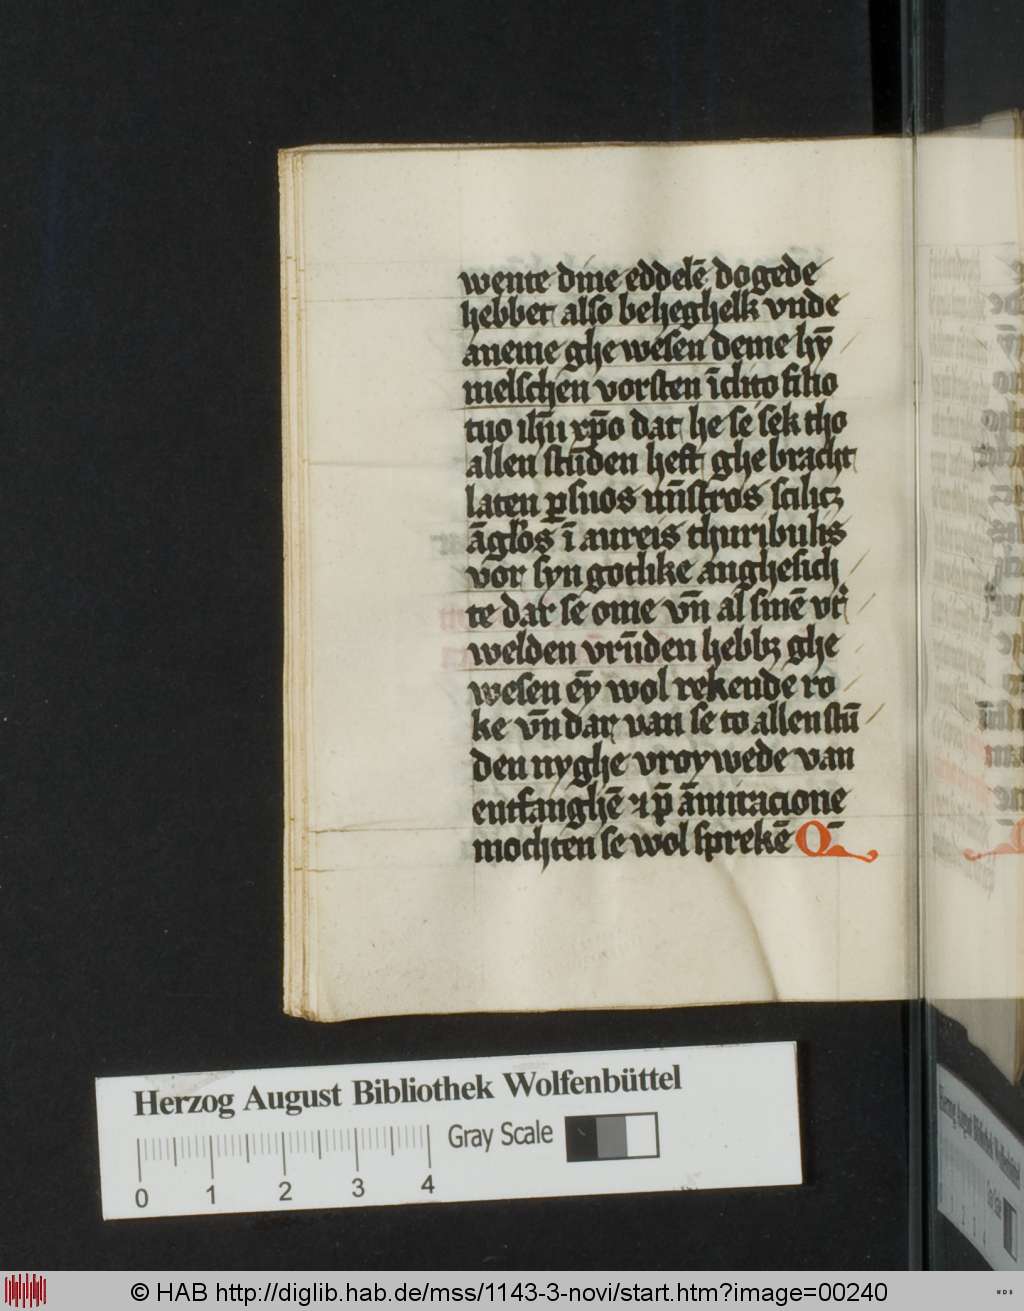 wente dine eddelē dogede
hebbet also beheghelk vnde
aneme ghe wesen deme hȳ
melschen vorsten īclito filio
tuo ihū xp̄o dat he se sek tho
allen stūden heft ghe bracht
laten ꝑ suos mīstros scilicꝫ
āglos ī aureis thuribulis
vor syn gotlike anghesich
te dar se ome vn̄ al sinē vt
welden vrūden hebbꝫ ghe
wesen eȳ wol rekende ro
ke vn̄ dar van se to allen stū
den nyghe vroywede van
entfanghē ⁊ p̄ āmiracione
mochten se wol sprekē Q̄
Herzog August Bibliothek Wolfenbüttel
Gray Scale
0 1 2 3 4
© HAB http://diglib.hab.de/mss/1143-3-novi/start.htm?image=00240